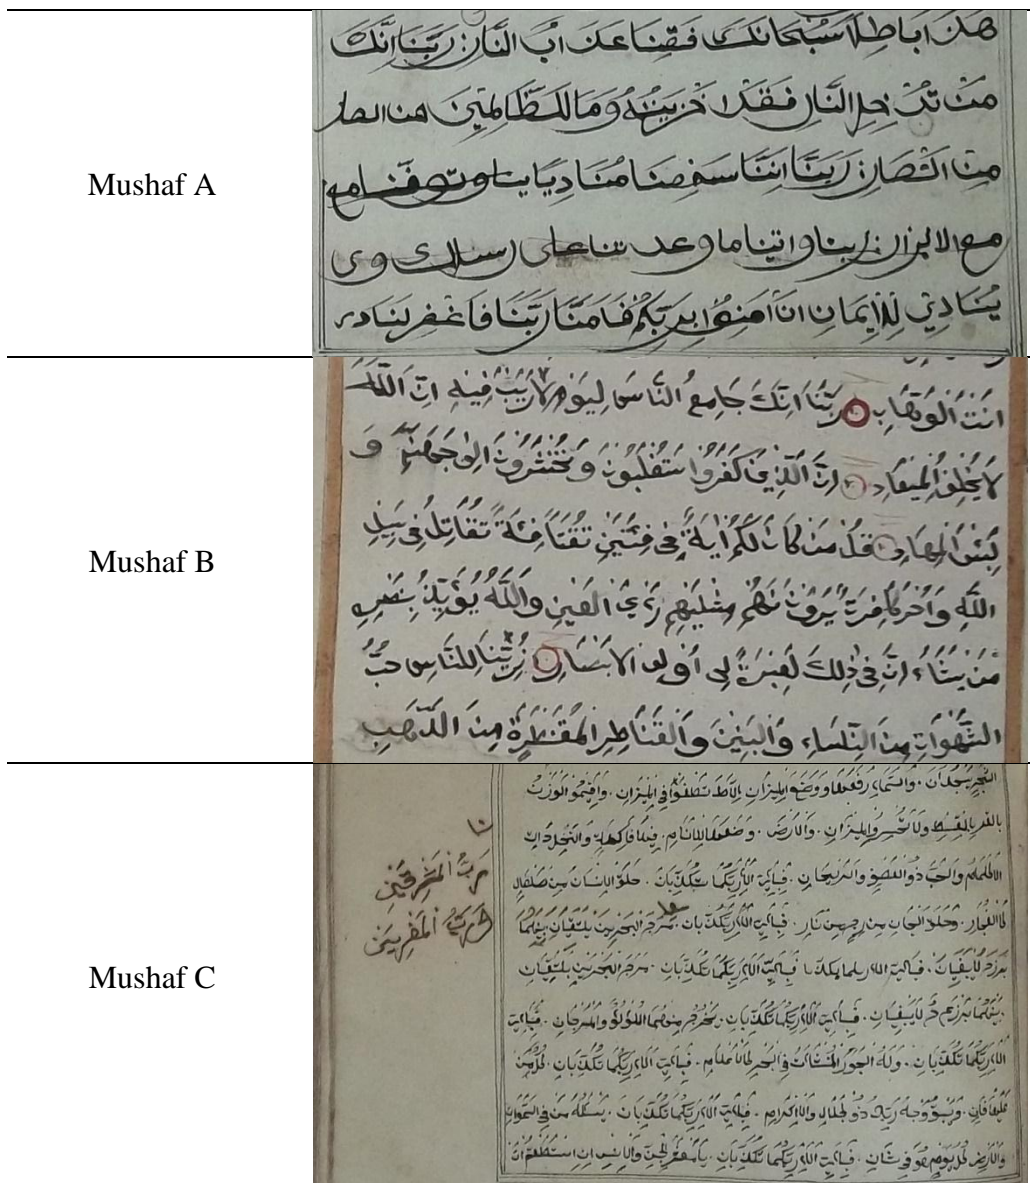 Mushaf A
هذا باطلا سبحانك فقنا عذاب النار ربنا انك
من تدخل النار فقد اخزيته وما للظالمين من انصار
من انصار ربنا اننا مناديا وتوفنا مع
مع الابرار ربنا واتينا ما وعدتنا على رسلك و
ينادي للايمان ان امنوا بربكم فامنا ربنا فاغفر لنا
Mushaf B
انت الوهاب ربنا انك جامع الناس ليوم لا ريب فيه ان الله
لا يخلف الميعاد ان الذين كفروا ستغلبون وتحشرون الى جهنم و
لبئس المهاد قل من كان لكم اية في فئتين تقتا فئة تقاتل في سبيل
الله واخر كافرة يرونهم مثليهم رءي العين والله يؤيد بنصره
من يشاء ان في ذلك لعبرة لى أولى الابصار زين للناس حب
الشهوات من النساء والبنين والقناطر المقنطرة من الذهب
Mushaf C
النجر يسجدان والسماء رفعها ووضع الميزان تطغوا في الميزان واقيموا الوزن
بالقسط ولا تخسروا الميزان والارض وضعها للانام فيها فاكهة والنخل ذات
والحب ذو العصف والريحان فباي الاء ربكما تكذبان خلق الانسان من صلصال
وخلق الجان من نار فباي الاء ربكما تكذبان مرج البحرين يلتقيان بينهما
يبغيان فباي الاء ربكما تكذبان مرج البحرين يلتقيان
بينهما برزخ لا يبغيان فباي الاء ربكما تكذبان يخرج منهما اللؤلؤ والمرجان فباي
الاء ربكما تكذبان وله الجوار المنشات في البحر كالاعلام فباي الاء ربكما تكذبان كل من
عليها فان ويبقى وجه ربك ذو الجلال والاكرام فباي الاء ربكما تكذبان يسئله من في السموات
والارض كل يوم هو في شان فباي الاء ربكما تكذبان يامعشر الجن والانس ان استطعتم ان
رب المشرقين
ورب المغربين